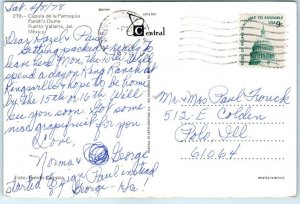 Sat. 4/8/78
270.- Cúpula de la Parroquia
Parish's Dome
Puerto Vallarta, Jal.
México.
Dear Hazel & Paul,
Getting packed & ready to
leave here Mon. the 10th. Will
spend a day on King Ranch at
Kingsville & hope to be home
by the 15th or 16th. Will
see you soon. Got some
nice grapefruit for you
Love,
Norma & George
started by ign Paul instead
George - Ha!
Foto:
Central
PM
TO ASSEMBLE
USA 9c
Mr. & Mrs. Paul Fouck
512 E. Colden
Polo, Ill
61064
PRINTED IN MEXICO